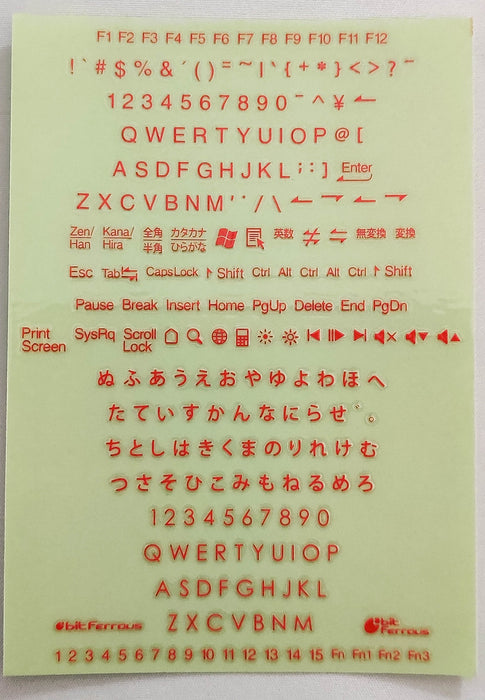 F1 F2 F3 F4 F5 F6 F7 F8 F9 F10 F11 F12
! ` # $ % & ´ ( ) = ~ | ` { + * } < > ? ¯
1 2 3 4 5 6 7 8 9 0 ¯ ^ ¥ ←
Q W E R T Y U I O P @ [
A S D F G H J K L ; : ] Enter
Z X C V B N M ' ¨ / \ ← → ← →
Zen/Han Kana/Hira 全角/半角 カタカナ/ひらがな 英数 無変換 変換
Esc Tab CapsLock Shift Ctrl Alt Ctrl Alt Ctrl Shift
Pause Break Insert Home PgUp Delete End PgDn
Print Screen SysRq Scroll Lock
ぬ ふ あ う え お や ゆ よ わ ほ へ
た て い す か ん な に ら せ ゛ 。
ち と し は き く ま の り れ け む
つ さ そ ひ こ み も ね る め ろ
1 2 3 4 5 6 7 8 9 0
Q W E R T Y U I O P
A S D F G H J K L
bit Ferrous Z X C V B N M bit Ferrous
1 2 3 4 5 6 7 8 9 10 11 12 13 14 15 Fn Fn1 Fn2 Fn3